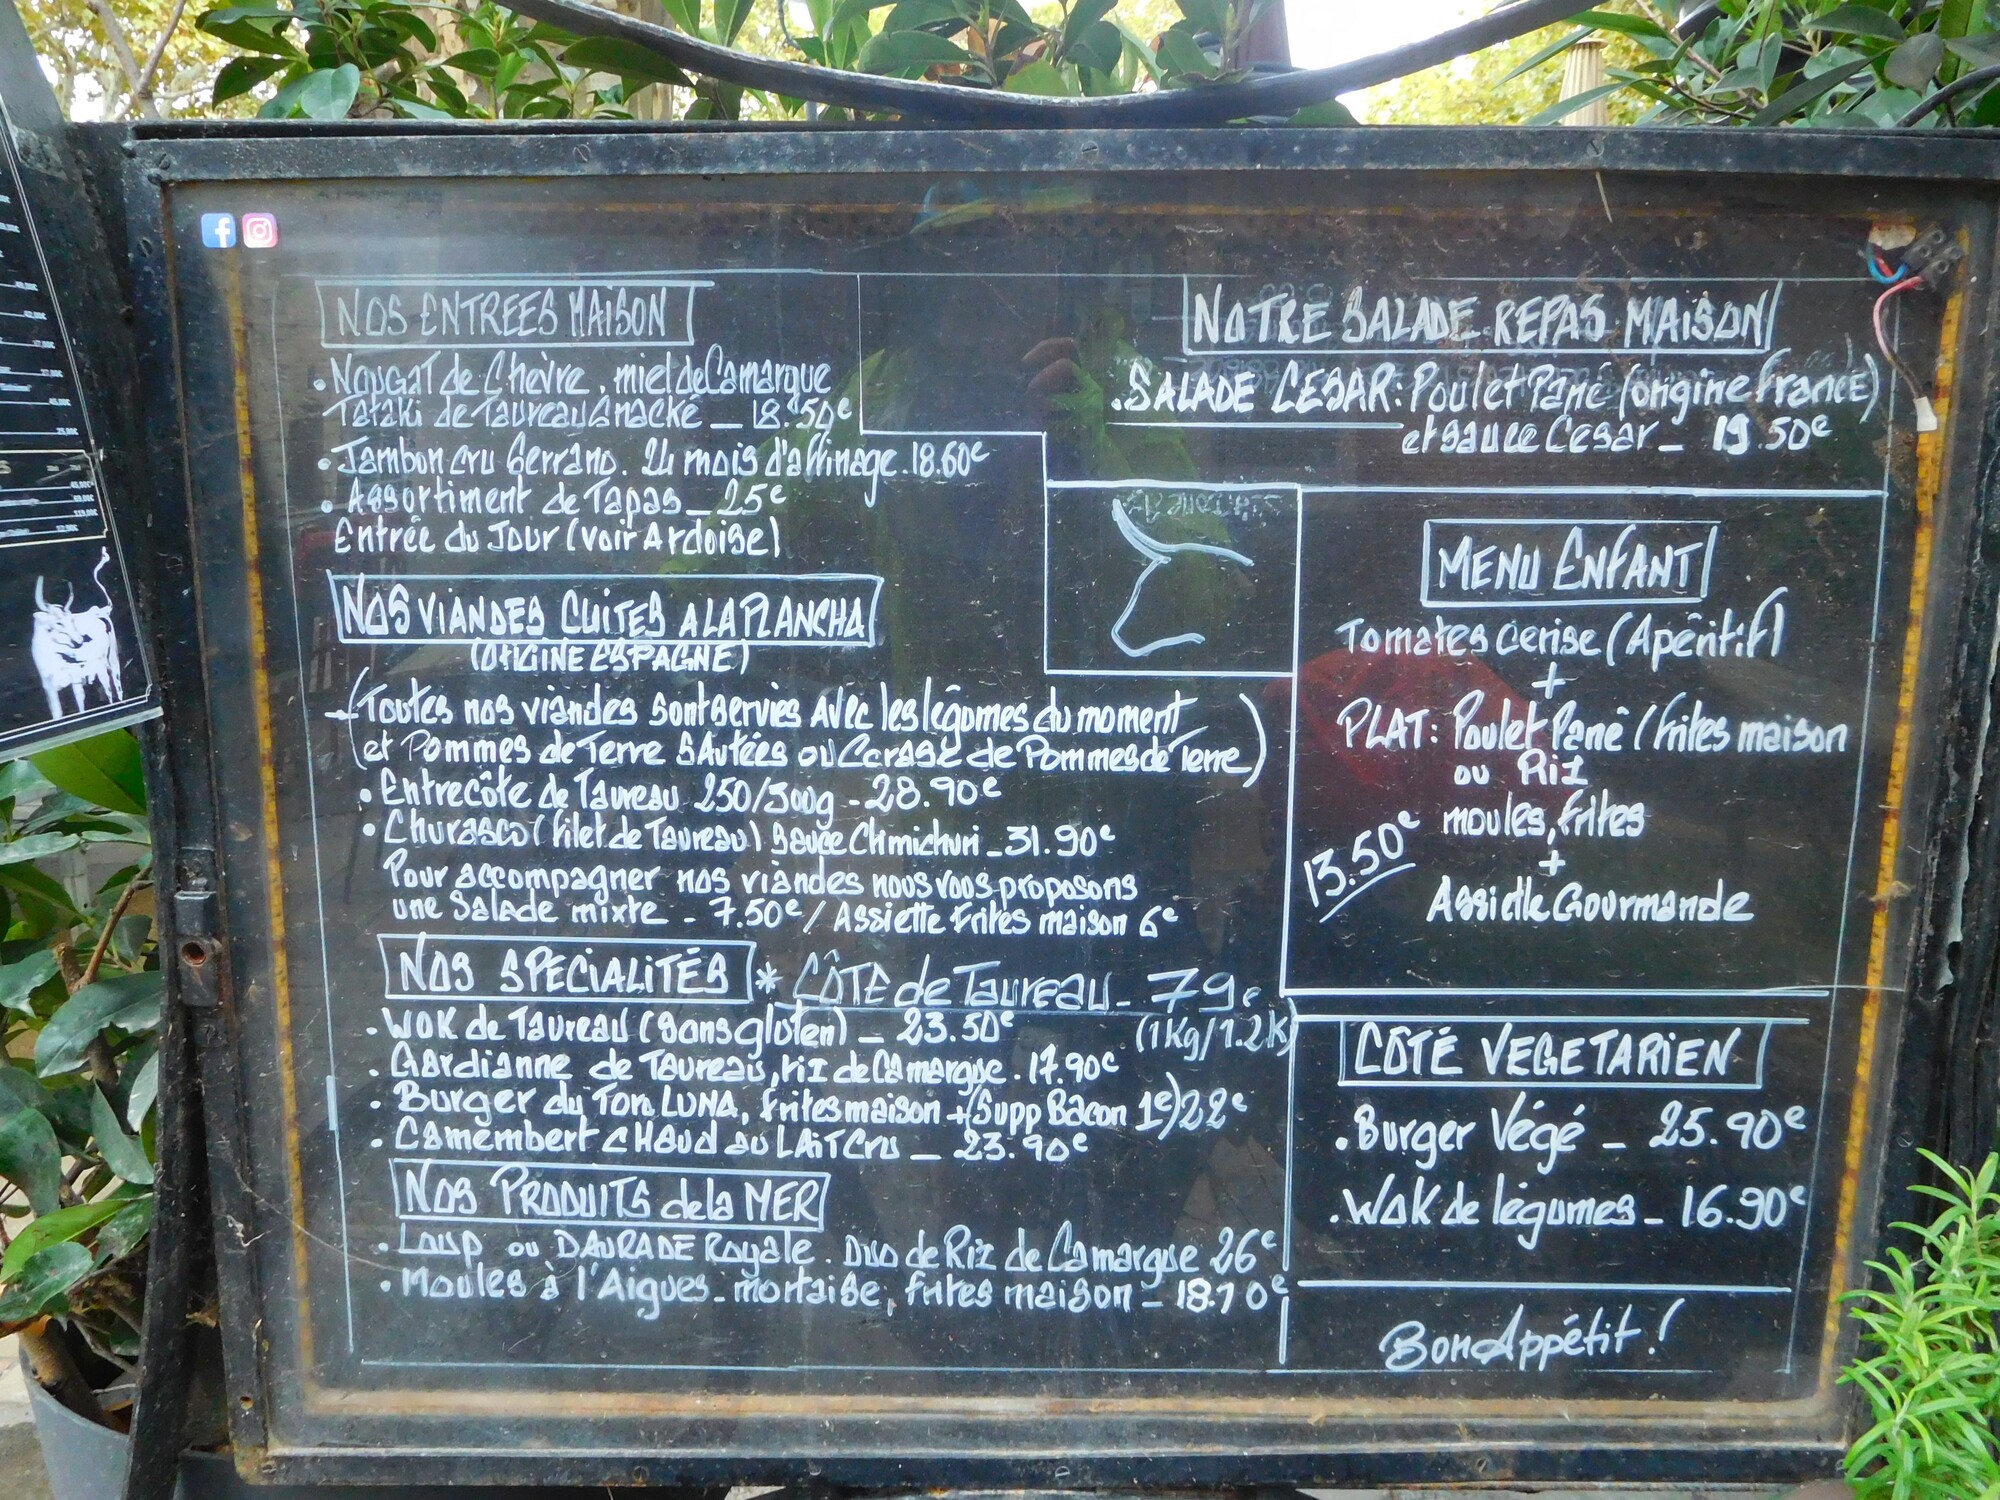 NOS ENTREES MAISON
. Nougat de Chèvre, miel de Camargue
Tataki de Taureau Snacké _ 18.50€
. Jambon cru Serrano. 24 mois d'affinage. 18.60€
. Assortiment de Tapas _ 25€
Entrée du Jour (voir Ardoise)
NOS VIANDES CUITES A LA PLANCHA
(ORIGINE ESPAGNE)
(Toutes nos viandes sont servies avec les légumes du moment
et Pommes de Terre Sautées ou Ecrasé de Pommes de Terre)
. Entrecôte de Taureau 250/300g - 28.90€
. Churasco (filet de Taureau) Sauce Chmichuri _ 31.90€
Pour accompagner nos viandes nous vous proposons
une Salade mixte - 7.50€ / Assiette Frites maison 6€
NOS SPECIALITÉS * CÔTE de Taureau - 79€
. Wok de Taureau (sans gluten) _ 23.50€ (1Kg/1.2K)
. Gardianne de Taureau, riz de Camargue. 17.90€
. Burger du Toro LUNA, frites maison + (Supp Bacon 1€) 22€
. Camembert CHAUD au LAIT CRU _ 23.90€
NOS PRODUITS de la MER
. Loup ou DAURADE Royale. Duo de Riz de Camargue 26€
. Moules à l'Aigues-mortaise, frites maison - 18.70€
NOTRE SALADE REPAS MAISON
. SALADE CESAR: Poulet Pané (origine France)
et sauce Cesar _ 19.50€
MENU ENFANT
Tomates cerise (Apéritif)
+
PLAT: Poulet Pané / frites maison
ou Riz
moules, frites
13.50€
+
Assiette Gourmande
CÔTÉ VEGETARIEN
. Burger Végé _ 25.90€
. Wok de légumes _ 16.90€
Bon Appétit !